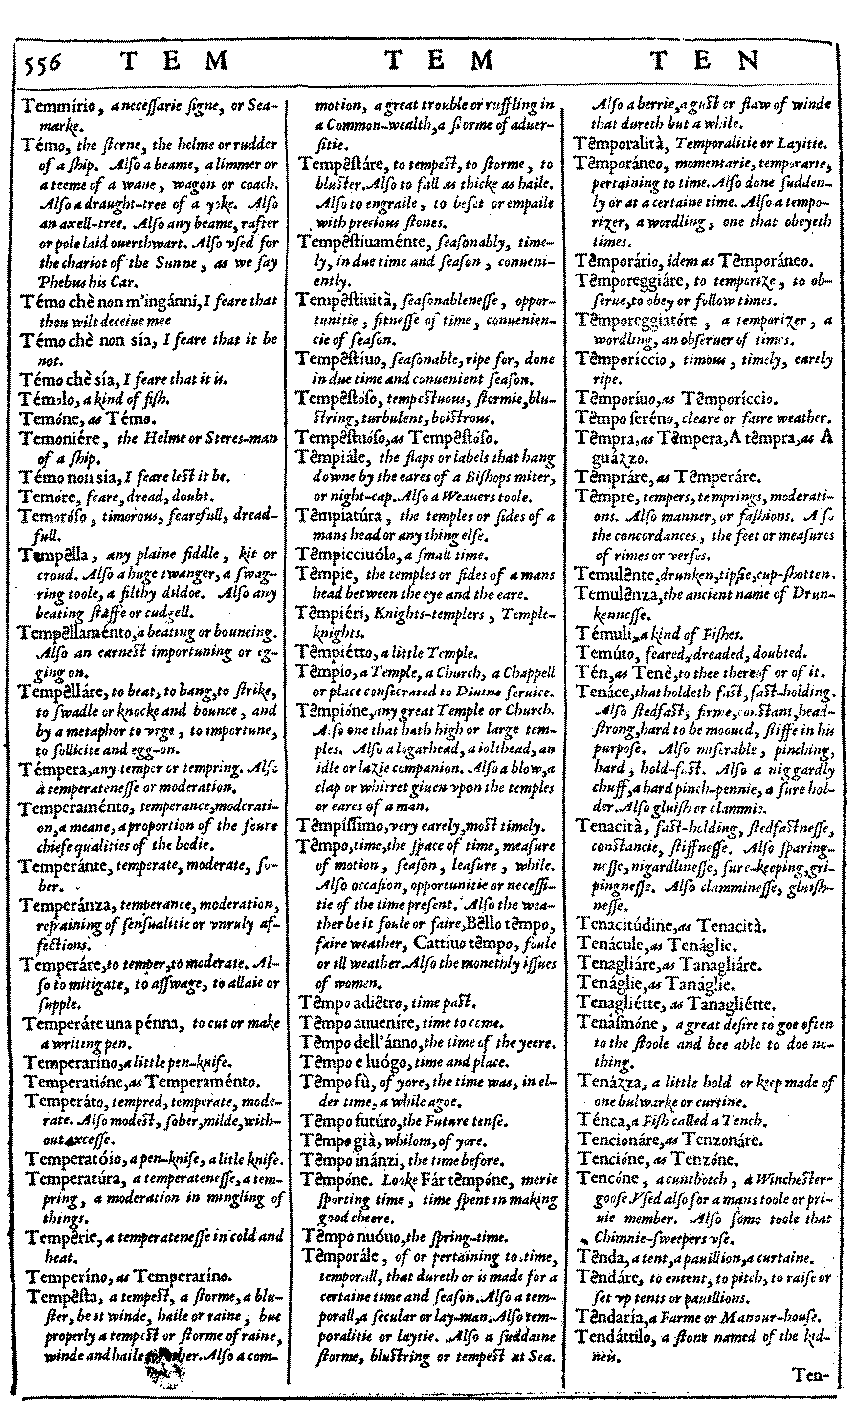 556 TEM TEM TEN
Temmírio, a necessarie signe, or Sea-
marke.
Témo, the sterne, the helme or rudder
of a ship. Also a beame, a limmer or
a teeme of a wane, wagon or coach.
Also a draught-tree of a yoke. Also
an axell-tree. Also any beame, rafter
or pole laid ouerthwart. Also vsed for
the chariot of the Sunne, as we say
Phebus his Car.
Témo chè non m'ingánni, I feare that
thou wilt deceiue mee
Témo chè non sía, I feare that it be
not.
Témo chè sía, I feare that it is.
Témolo, a kind of fish.
Temóne, as Témo.
Temoniére, the Helme or Steres-man
of a ship.
Témo non sia, I feare lest it be.
Temóre, feare, dread, doubt.
Temoróso, timorous, fearefull, dread-
full.
Tempêlla, any plaine fiddle, kit or
croud. Also a huge twanger, a swag-
ring toole, a filthy dildoe. Also any
beating staffe or cudgell.
Tempêllaménto, a beating or bouncing.
Also an earnest importuning or eg-
ging on.
Tempêlláre, to beat, to bang, to strike,
to swadle or knocke and bounce, and
by a metaphor to vrge, to importune,
to sollicite and egg-on.
Témpera, any temper or tempring. Also
a temperatenesse or moderation.
Temperaménto, temperance, moderati-
on, a meane, a proportion of the foure
chiefe qualities of the bodie.
Temperánte, temperate, moderate, so-
ber.
Temperánza, temperance, moderation,
refraining of sensualitie or vnruly af-
fections.
Temperáre, to temper, to moderate. Al-
so to mitigate, to asswage, to allaie or
supple.
Temperáre una pénna, to cut or make
a writing pen.
Temperaríno, a little pen-knife.
Temperatióne, as Temperaménto.
Temperáto, tempred, temperate, mode-
rate. Also modest, sober, milde, with-
out excesse.
Temperatóio, a pen-knife, a litle knife.
Temperatúra, a temperatenesse, a tem-
pring, a moderation in mingling of
things.
Tempêrie, a temperatenesse in cold and
heat.
Temperíno, as Temperaríno.
Tempêsta, a tempest, a storme, a blu-
ster, be it winde, haile or raine, but
properly a tempest or storme of raine,
winde and haile together. Also a com-
motion, a great trouble or ruffling in
a Common-wealth, a storme of aduer-
sitie.
Tempêstáre, to tempest, to storme, to
bluster. Also to fall as thicke as haile.
Also to engraile, to beset or empaile
with precious stones.
Tempêstiuaménte, seasonably, time-
ly, in due time and season, conueni-
ently.
Tempêstiuità, seasonablenesse, oppor-
tunitie, fitnesse of time, conuenien-
cie of season.
Tempêstíuo, seasonable, ripe for, done
in due time and conuenient season.
Tempêstóso, tempestuous, stormie, blu-
string, turbulent, boistrous.
Tempêstuóso, as Tempêstóso.
Têmpiále, the flaps or labels that hang
downe by the eares of a Bishops miter,
or night-cap. Also a Weauers toole.
Têmpiatúra, the temples or sides of a
mans head or any thing else.
Têmpicciuólo, a small time.
Têmpie, the temples or sides of a mans
head between the eye and the eare.
Têmpiéri, Knights-templers, Temple-
knights.
Têmpiétto, a little Temple.
Têmpio, a Temple, a Church, a Chappell
or place consecrated to Diuine seruice.
Têmpióne, any great Temple or Church.
Also one that hath high or large tem-
ples. Also a logarhead, a iolthead, an
idle or lazie companion. Also a blow, a
clap or whirret giuen vpon the temples
or eares of a man.
Têmpíssimo, very earely, most timely.
Têmpo, time, the space of time, measure
of motion, season, leasure, while.
Also occasion, opportunitie or necessi-
tie of the time present. Also the wea-
ther be it foule or faire, Bêllo têmpo,
faire weather, Cattíuo têmpo, foule
or ill weather. Also the monethly issues
of women.
Têmpo adiêtro, time past.
Têmpo auueníre, time to come.
Têmpo dell'ánno, the time of the yeere.
Têmpo e luógo, time and place.
Têmpo fù, of yore, the time was, in el-
der time, a while agoe.
Têmpo futúro, the Future tense.
Têmpo già, whilom, of yore.
Têmpo inánzi, the time before.
Têmpóne. Looke Fár têmpóne, merie
sporting time, time spent in making
good cheere.
Têmpo nuóuo, the spring-time.
Têmporále, of or pertaining to time,
temporall, that dureth or is made for a
certaine time and season. Also a tem-
porall, a secular or lay-man. Also tem-
poralitie or laytie. Also a suddaine
storme, blustring or tempest at Sea.
Also a berrie, a gust or flaw of winde
that dureth but a while.
Têmporalità, Temporalitie or Layitie.
Têmporáneo, momentarie, temporarie,
pertaining to time. Also done sudden-
ly or at a certaine time. Also a tempo-
rizer, a wordling, one that obeyeth
times.
Têmporário, idem as Têmporáneo.
Têmporeggiáre, to temporize, to ob-
serue, to obey or follow times.
Têmporeggiatóre, a temporizer, a
wordling, an obseruer of times.
Têmporíccio, timous, timely, earely
ripe.
Têmporíuo, as Têmporíccio.
Têmpo seréno, cleare or faire weather.
Têmpra, as Têmpera, A têmpra, as A
guázzo.
Têmpráre, as Têmperáre.
Têmpre, tempers, temprings, moderati-
ons. Also manner, or fashions. Also
the concordances, the feet or measures
of rimes or verses.
Temulênte, drunken, tipsie, cup-shotten.
Temulênza, the ancient name of Drun-
kennesse.
Témuli, a kind of Fishes.
Temúto, feared, dreaded, doubted.
Tén, as Tenè, to thee thereof or of it.
Tenáce, that holdeth fast, fast-holding.
Also stedfast, firme, constant, head-
strong, hard to be mooued, stiffe in his
purpose. Also miserable, pinching,
hard, hold-fast. Also a niggardly
chuff, a hard pinch-pennie, a sure hol-
der. Also gluish or clammie.
Tenacità, fast-holding, stedfastnesse,
constancie, stiffnesse. Also sparing-
nesse, nigardlinesse, sure-keeping, gri-
pingnesse. Also clamminesse, gluish-
nesse.
Tenacitúdine, as Tenacità.
Tenácule, as Tenáglie.
Tenagliáre, as Tanagliáre.
Tenáglie, as Tanáglie.
Tenagliétte, as Tanagliétte.
Tenásmóne, a great desire to goe often
to the stoole and bee able to doe no-
thing.
Tenázza, a little hold or keep made of
one bulwarke or curtine.
Ténca, a Fish called a Tench.
Tencionáre, as Tenzonáre.
Tencióne, as Tenzóne.
Tencóne, a cunbotch, a Winchester-
goose. Vsed also for a mans toole or pri-
uie member. Also some toole that
Chimnie-sweepers vse.
Tênda, a tent, a pauillion, a curtaine.
Têndáre, to entent, to pitch, to raise or
set vp tents or pauillions.
Têndaría, a Farme or Manour-house.
Tendáttilo, a stone named of the kid-
neis.
Ten-